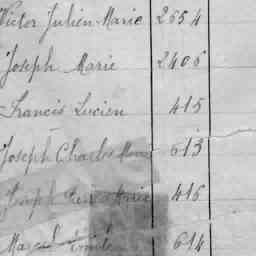 Victor Julien Marie 2654
Joseph Marie 2406
Francis Lucien 415
Joseph Charles Marie 613
Joseph Marie 416
Marcel Emile 614